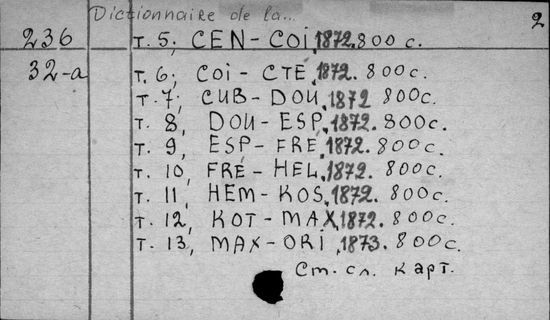 Dictionnaire de la.. 2
236 т. 5, CEN-COI, 1872. 800 с.
32-а т. 6, COI-CTÉ, 1872. 800 с.
т. 7, CUB-DOU, 1872 800 с.
т. 8, DOU-ESP, 1872. 800 с.
т. 9, ESP-FRE, 1872. 800 с.
т. 10, FRÉ-HEL, 1872. 800 с.
т. 11, HEM-KOS, 1872. 800 с.
т. 12, KOT-MAX, 1872. 800 с.
т. 13, MAX-ORI, 1873. 800 с.
См. сл. карт.